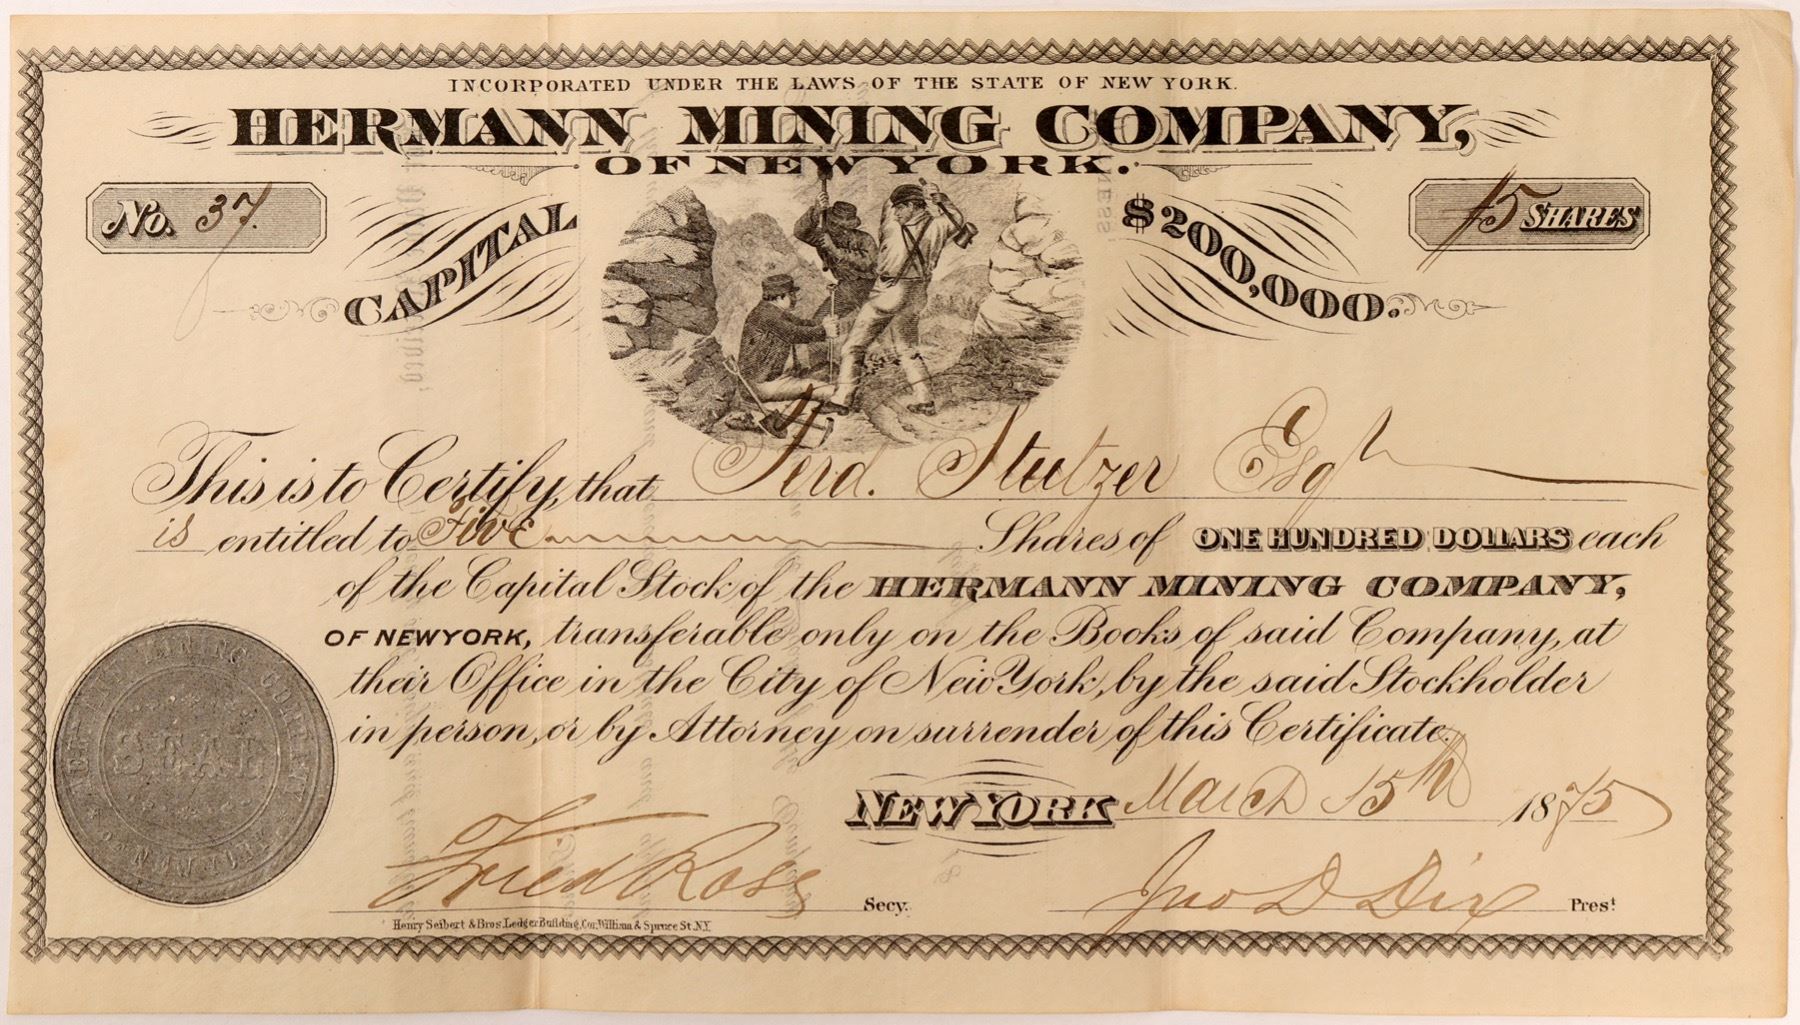 INCORPORATED UNDER THE LAWS OF THE STATE OF NEW YORK.
HERMANN MINING COMPANY,
OF NEW YORK.
No. 37.
CAPITAL $200,000.
5 SHARES
This is to Certify, that Ferd. Stutzer Esq
is entitled to Five Shares of ONE HUNDRED DOLLARS each
of the Capital Stock of the HERMANN MINING COMPANY,
OF NEW YORK, transferable only on the Books of said Company, at
their Office in the City of New York, by the said Stockholder
in person, or by Attorney on surrender of this Certificate.
NEW YORK March 15th 1875
Fried Ross Secy.
Jno D Dix Prest
Henry Seibert & Bros. Ledger Building, Cor. William & Spruce St. N.Y.
HERMANN MINING COMPANY
SEAL
OF NEW YORK